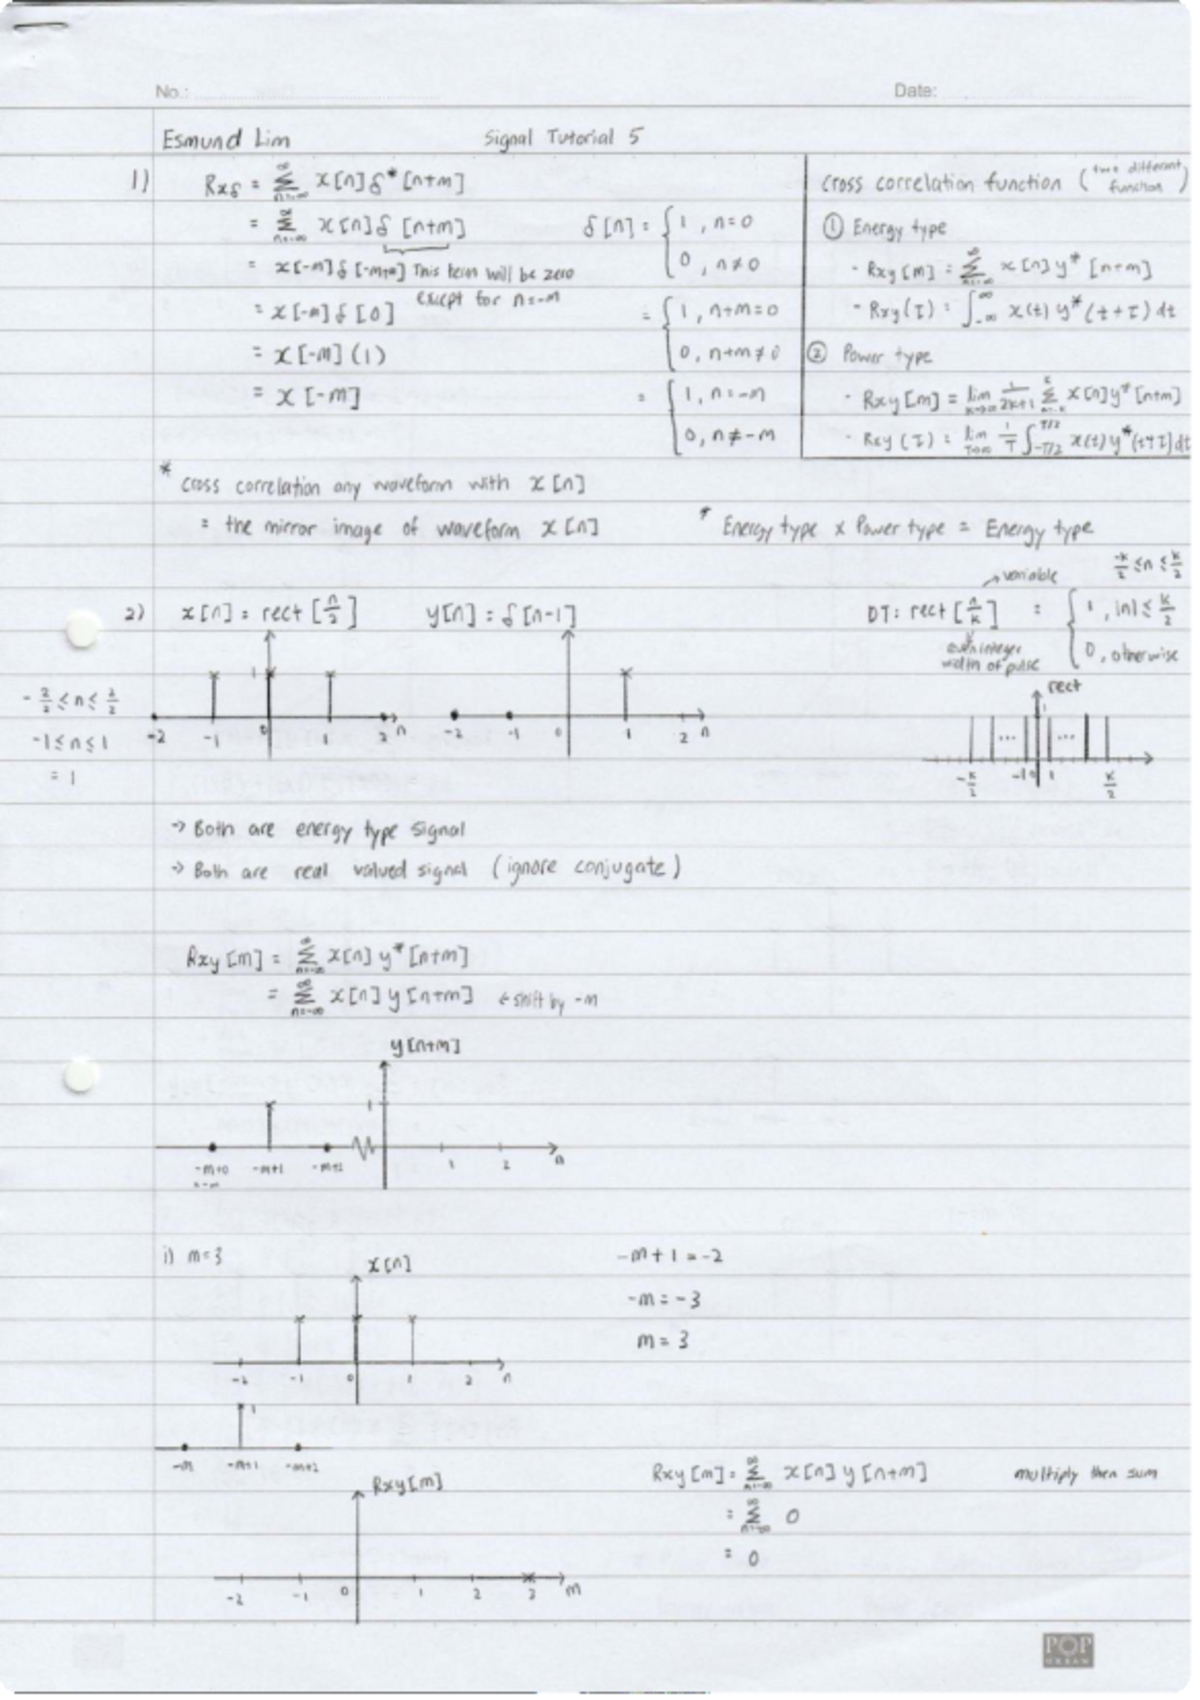 No.: Date:
Esmund Lim Signal Tutorial 5
1) Rxδ = ∑ n=-∞ ∞ x[n] δ* [n+m]
= ∑ n=-∞ ∞ x[n] δ [n+m]
= x[-m] δ [-m+m] This term will be zero
except for n=-m
= x[-m] δ [0]
= x[-m] (1)
= x [-m]
δ [n] = { 1 , n=0
0 , n≠0
= { 1 , n+m=0
0 , n+m≠0
= { 1 , n=-m
0 , n≠-m
Cross correlation function ( two different
function )
① Energy type
- Rxy [m] = ∑ n=-∞ ∞ x[n] y* [n+m]
- Rxy (τ) = ∫ -∞ ∞ x(t) y* (t+τ) dt
② Power type
- Rxy [m] = lim k→∞ 1/2k+1 ∑ n=-k k x[n] y* [n+m]
- Rxy (τ) = lim T→∞ 1/T ∫ -T/2 T/2 x(t) y* (t+τ) dt
* Cross correlation any waveform with x[n]
= the mirror image of waveform x[n]
* Energy type x Power type = Energy type
2) x[n] = rect [n/2] y[n] = δ [n-1]
-2/2 ≤ n ≤ 2/2
-1 ≤ n ≤ 1
= 1
1
-2 -1 0 1 2 n
-2 -1 0 1 2 n
variable
-k/2 ≤ n ≤ k/2
DT: rect [n/k] = { 1 , |n| ≤ k/2
0 , otherwise
even integer
width of pulse
rect
1
... ...
-k/2 -1 0 1 k/2
→ Both are energy type signal
→ Both are real valued signal (ignore conjugate)
Rxy [m] = ∑ n=-∞ ∞ x[n] y* [n+m]
= ∑ n=-∞ ∞ x[n] y [n+m] ← shift by -m
y [n+m]
1
-m+0 -m+1 -m+2 1 2 n
i) m=3
x[n]
-2 -1 0 1 2 n
1
-m -m+1 -m+2
-m+1 = -2
-m = -3
m = 3
Rxy[m]
-2 -1 0 1 2 3 m
Rxy [m] = ∑ n=-∞ ∞ x[n] y [n+m] multiply then sum
= ∑ n=-∞ ∞ 0
= 0
POP
URBAN